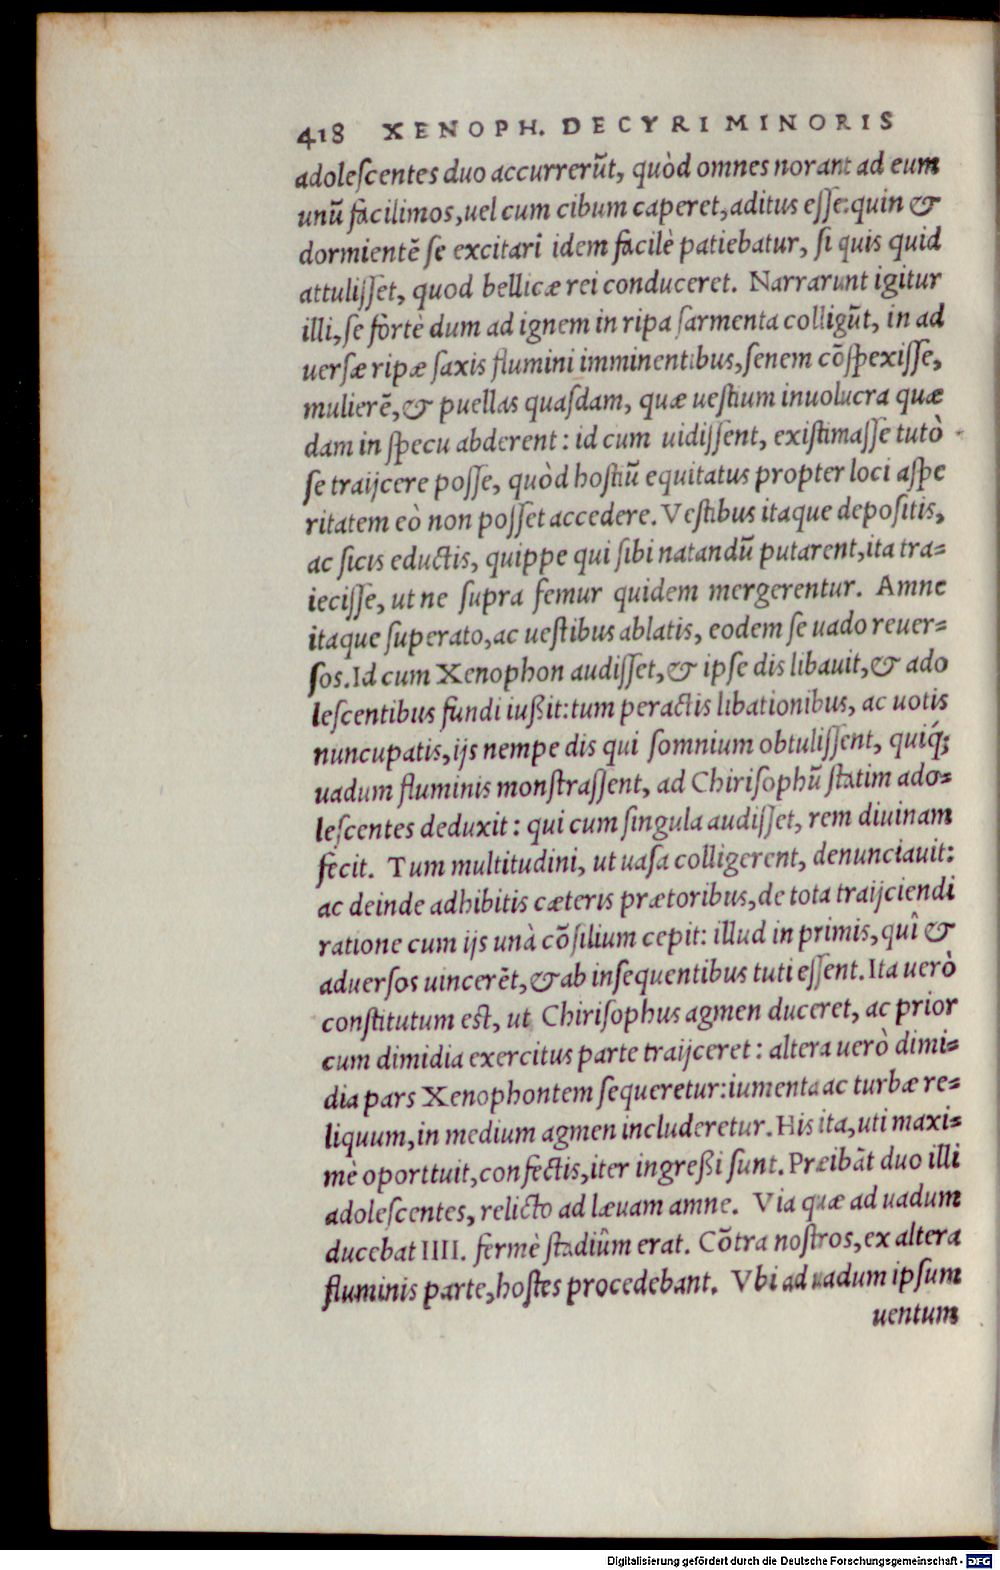 418 XENOPH. DE CYRI MINORIS
adoleſcentes duo accurrerũt, quòd omnes norant ad eum
unũ facilimos, uel cum cibum caperet, aditus eſſe: quin &
dormientẽ ſe excitari idem facilè patiebatur, ſi quis quid
attuliſſet, quod bellicæ rei conduceret. Narrarunt igitur
illi, ſe fortè dum ad ignem in ripa ſarmenta colligũt, in ad
uerſæ ripæ ſaxis flumini imminentibus, ſenem cõſpexiſſe,
mulierẽ, & puellas quaſdam, quæ ueſtium inuolucra quæ
dam in ſpecu abderent: id cum uidiſſent, exiſtimaſſe tutò
ſe traijcere poſſe, quòd hoſtiũ equitatus propter loci aſpe
ritatem eò non poſſet accedere. Veſtibus itaque depoſitis,
ac ſicis eductis, quippe qui ſibi natandũ putarent, ita tra=
ieciſſe, ut ne ſupra femur quidem mergerentur. Amne
itaque ſuperato, ac ueſtibus ablatis, eodem ſe uado reuer=
ſos. Id cum Xenophon audiſſet, & ipſe dis libauit, & ado
leſcentibus fundi iußit: tum peractis libationibus, ac uotis
nuncupatis, ijs nempe dis qui ſomnium obtuliſſent, quiq́;
uadum fluminis monſtraſſent, ad Chiriſophũ ſtatim ado=
leſcentes deduxit: qui cum ſingula audiſſet, rem diuinam
fecit. Tum multitudini, ut uaſa colligerent, denunciauit:
ac deinde adhibitis cæteris prætoribus, de tota traijciendi
ratione cum ijs unà cõſilium cepit: illud in primis, quî &
aduerſos uincerẽt, & ab inſequentibus tuti eſſent. Ita uerò
conſtitutum eſt, ut Chiriſophus agmen duceret, ac prior
cum dimidia exercitus parte traijceret: altera uerò dimi=
dia pars Xenophontem ſequeretur: iumenta ac turbæ re=
liquum, in medium agmen includeretur. His ita, uti maxi=
mè oportuit, confectis, iter ingreßi ſunt. Præibãt duo illi
adoleſcentes, relicto ad læuam amne. Via quæ ad uadum
ducebat IIII. fermè ſtadiûm erat. Cõtra noſtros, ex altera
fluminis parte, hoſtes procedebant. Vbi ad uadum ipſum
uentum
Digitalisierung gefördert durch die Deutsche Forschungsgemeinschaft - DFG